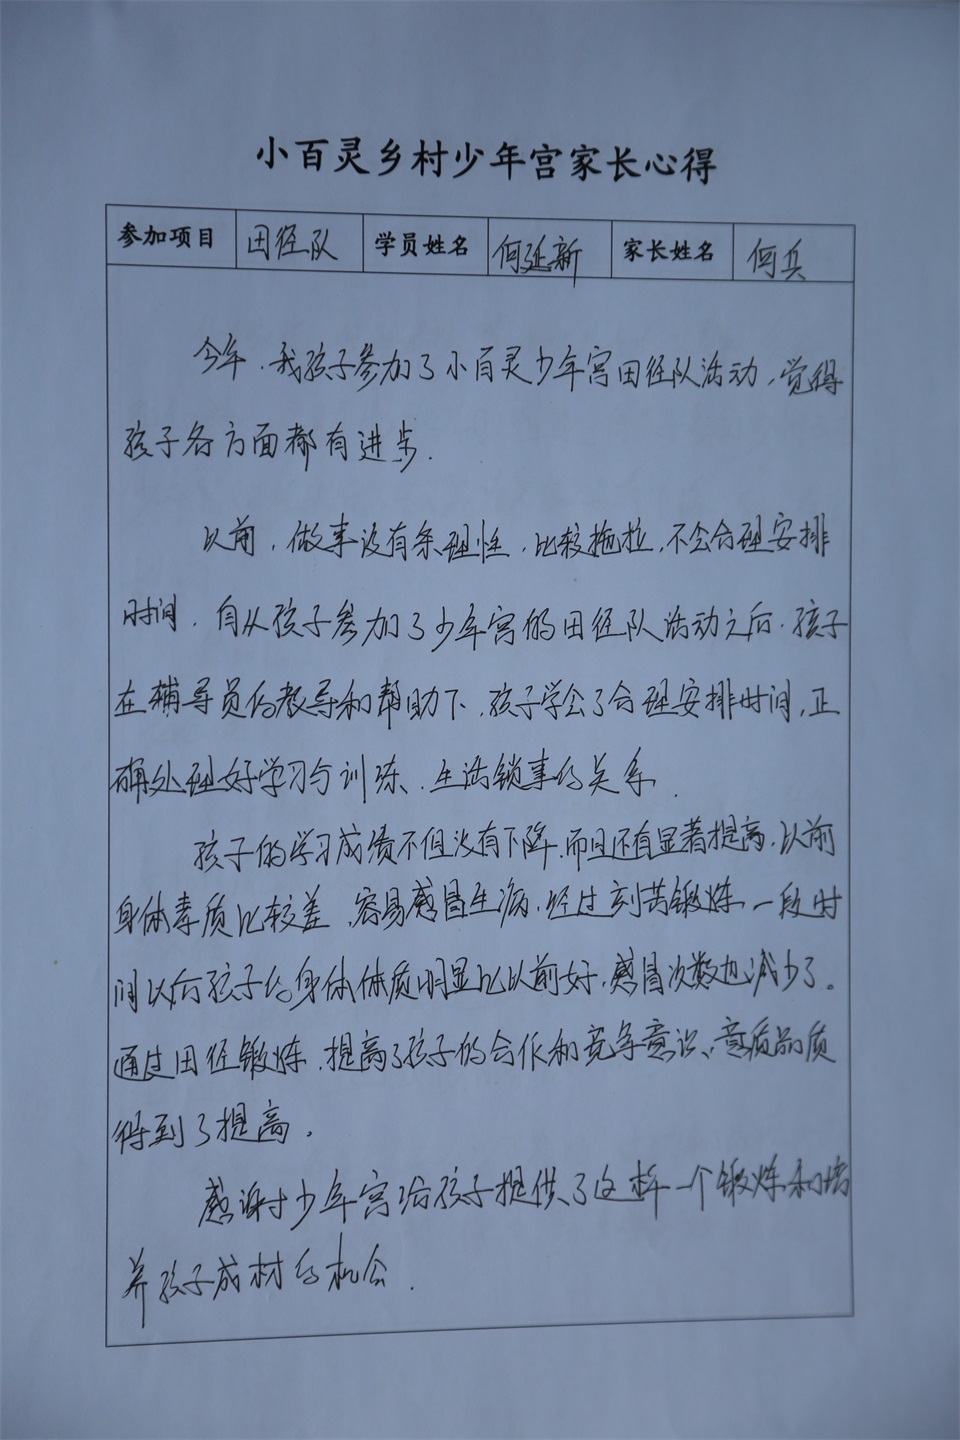 小百灵乡村少年宫家长心得
参加项目 田径队 学员姓名 何延新 家长姓名 何兵
今年,我孩子参加了小百灵少年宫田径队活动,觉得
孩子各方面都有进步.
以前,做事没有条理性,比较拖拉,不会合理安排
时间,自从孩子参加了少年宫的田径队活动之后,孩子
在辅导员的教导和帮助下,孩子学会了合理安排时间,正
确处理好学习与训练、生活锁事的关系.
孩子的学习成绩不但没有下降,而且还有显著提高,以前
身体素质比较差,容易感冒生病,经过刻苦锻炼,一段时
间以后孩子的身体体质明显比以前好,感冒次数也减少了。
通过田径锻炼,提高了孩子的合作和竞争意识,意质品质
得到了提高.
感谢少年宫给孩子提供了这样一个锻炼和培
养孩子成材的机会.